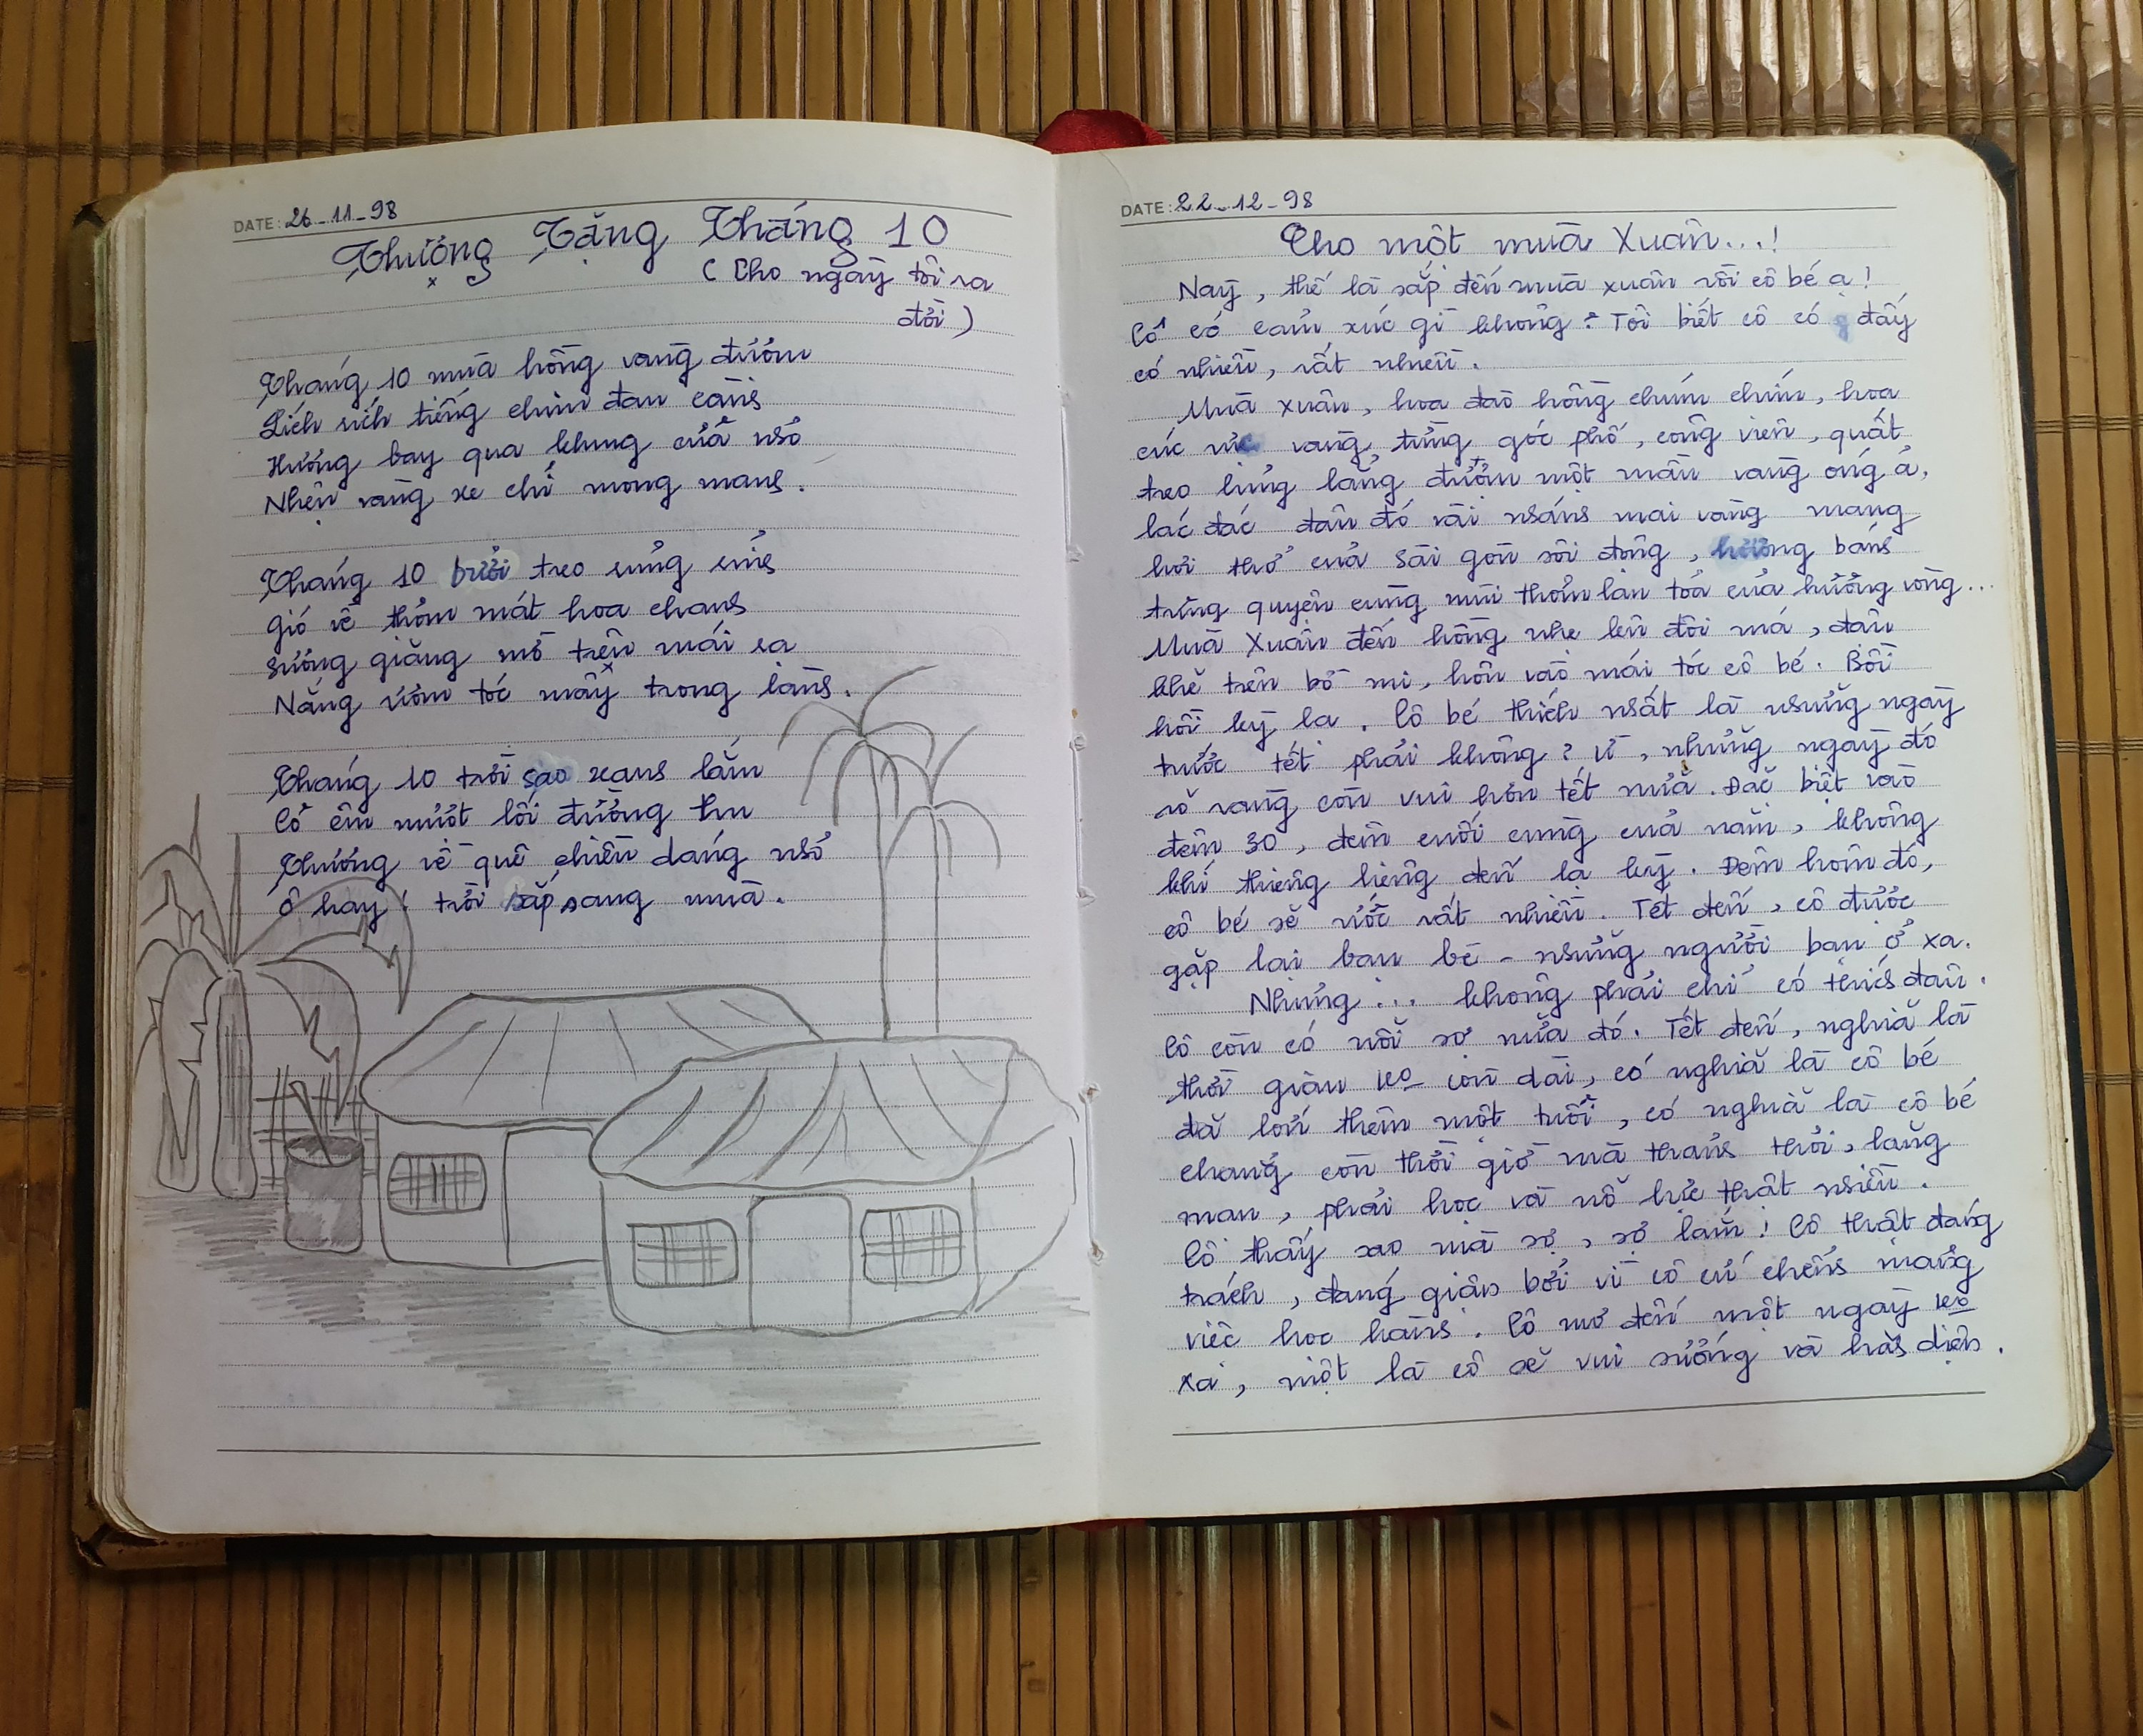 DATE: 26-11-98
Thương Tặng Tháng 10
(Cho ngày tôi ra
đời)
Tháng 10 mùa hồng vàng đượm
Lích rích tiếng chim đan cành
Hương bay qua khung cửa nhỏ
Nhện vàng xe chỉ mong manh.
Tháng 10 bưởi treo rung rinh
Gió về thơm mát hoa chanh
Sương giăng mờ trên mái rạ
Nắng ươm tóc mây trong lành.
Tháng 10 trời sao xanh lắm
Cỏ êm mướt lối đường thu
Thương về quê chiều dáng nhỏ
Ô hay! trời sắp sang mùa.
DATE: 22-12-98
Cho một mùa Xuân...!
Này, thế là sắp đến mùa xuân rồi cô bé ạ!
Cô có cảm xúc gì không? Tôi biết cô có đấy
có nhiều, rất nhiều.
Mùa xuân, hoa đào hồng chúm chím, hoa
cúc vàng từng góc phố, công viên, quất
treo lủng lẳng đượm một màu vàng óng ả,
lác đác đâu đó vài nhánh mai vàng mang
hơi thở của Sài gòn sôi động, hương bánh
trưng quyện cùng mùi thơm lan tỏa của hương vòng...
Mùa Xuân đến hồng nhẹ lên đôi má, đậu
khẽ trên bờ mi, hôn vào mái tóc cô bé. Bồi
hồi kỳ lạ. Cô bé thích nhất là những ngày
trước tết phải không? Ừ, những ngày đó
rõ ràng còn vui hơn tết nữa. Đặc biệt vào
đêm 30, đêm cuối cùng của năm, không
khí thiêng liêng đến lạ kỳ. Đêm hôm đó,
cô bé sẽ ước rất nhiều. Tết đến, cô được
gặp lại bạn bè - những người bạn ở xa.
Nhưng... không phải chỉ có thích đâu.
Cô còn có nỗi sợ nữa đó. Tết đến, nghĩa là
thời gian ko còn dài, có nghĩa là cô bé
đã lớn thêm một tuổi, có nghĩa là cô bé
chẳng còn thời giờ mà thảnh thơi, lãng
mạn, phải học và nỗ lực thật nhiều.
Cô thấy sao mà sợ, sợ lắm! Cô thật đáng
trách, đáng giận bởi vì cô cứ chểnh mảng
việc học hành. Cô mơ đến một ngày ko
xa, một là cô sẽ vui sướng và hãnh diện.